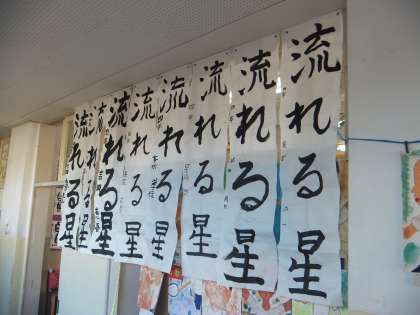 流れる星
流れる星
流れる星
流れる星
流れる星
流れる星
流れる星
流れる星
流れる星